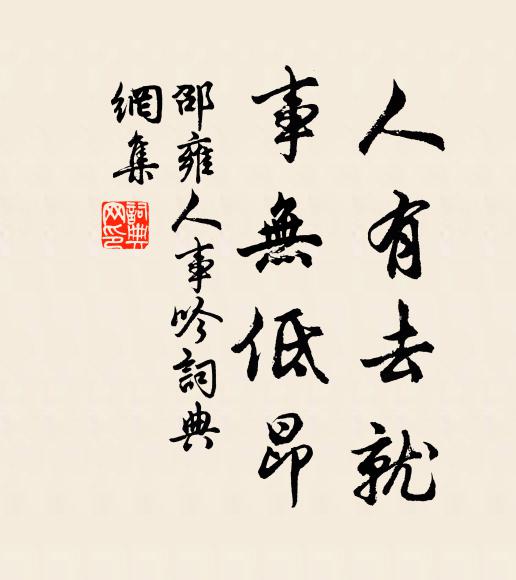 人有去就
事無低昂
邵雍人事吟詞典
網集
詞典
网印